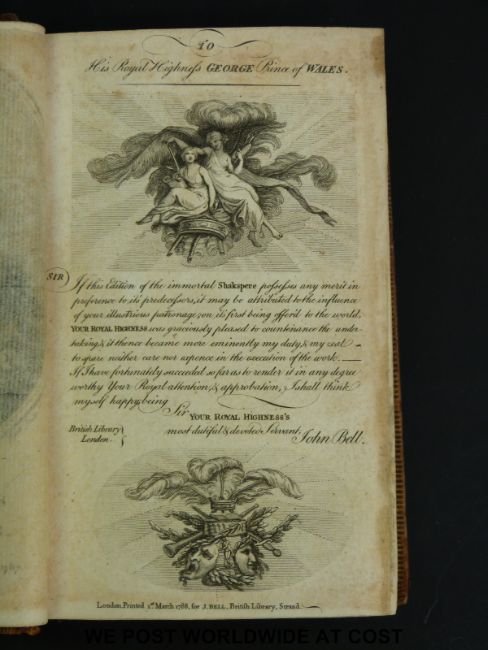 TO
His Royal Highness GEORGE Prince of WALES.
SIR
If this Edition of the immortal Shakspere possesses any merit in
preference to its predecessors, it may be attributed to the influence
of your illustrious patronage; on its first being offer'd to the world,
YOUR ROYAL HIGHNESS was graciously pleased to countenance the under-
taking, & it thence became more eminently my duty, & my zeal
to spare neither care nor expence in the execution of the work. —
If I have fortunately succeeded so far as to render it in any degree
worthy Your Royal attention, & approbation, I shall think
myself happy, being
Sir YOUR ROYAL HIGHNESS's
British Library
London.
most dutiful & devoted Servant,
John Bell.
London, Printed 1st March 1788, for J. BELL, British Library, Strand.
WE POST WORLDWIDE AT COST